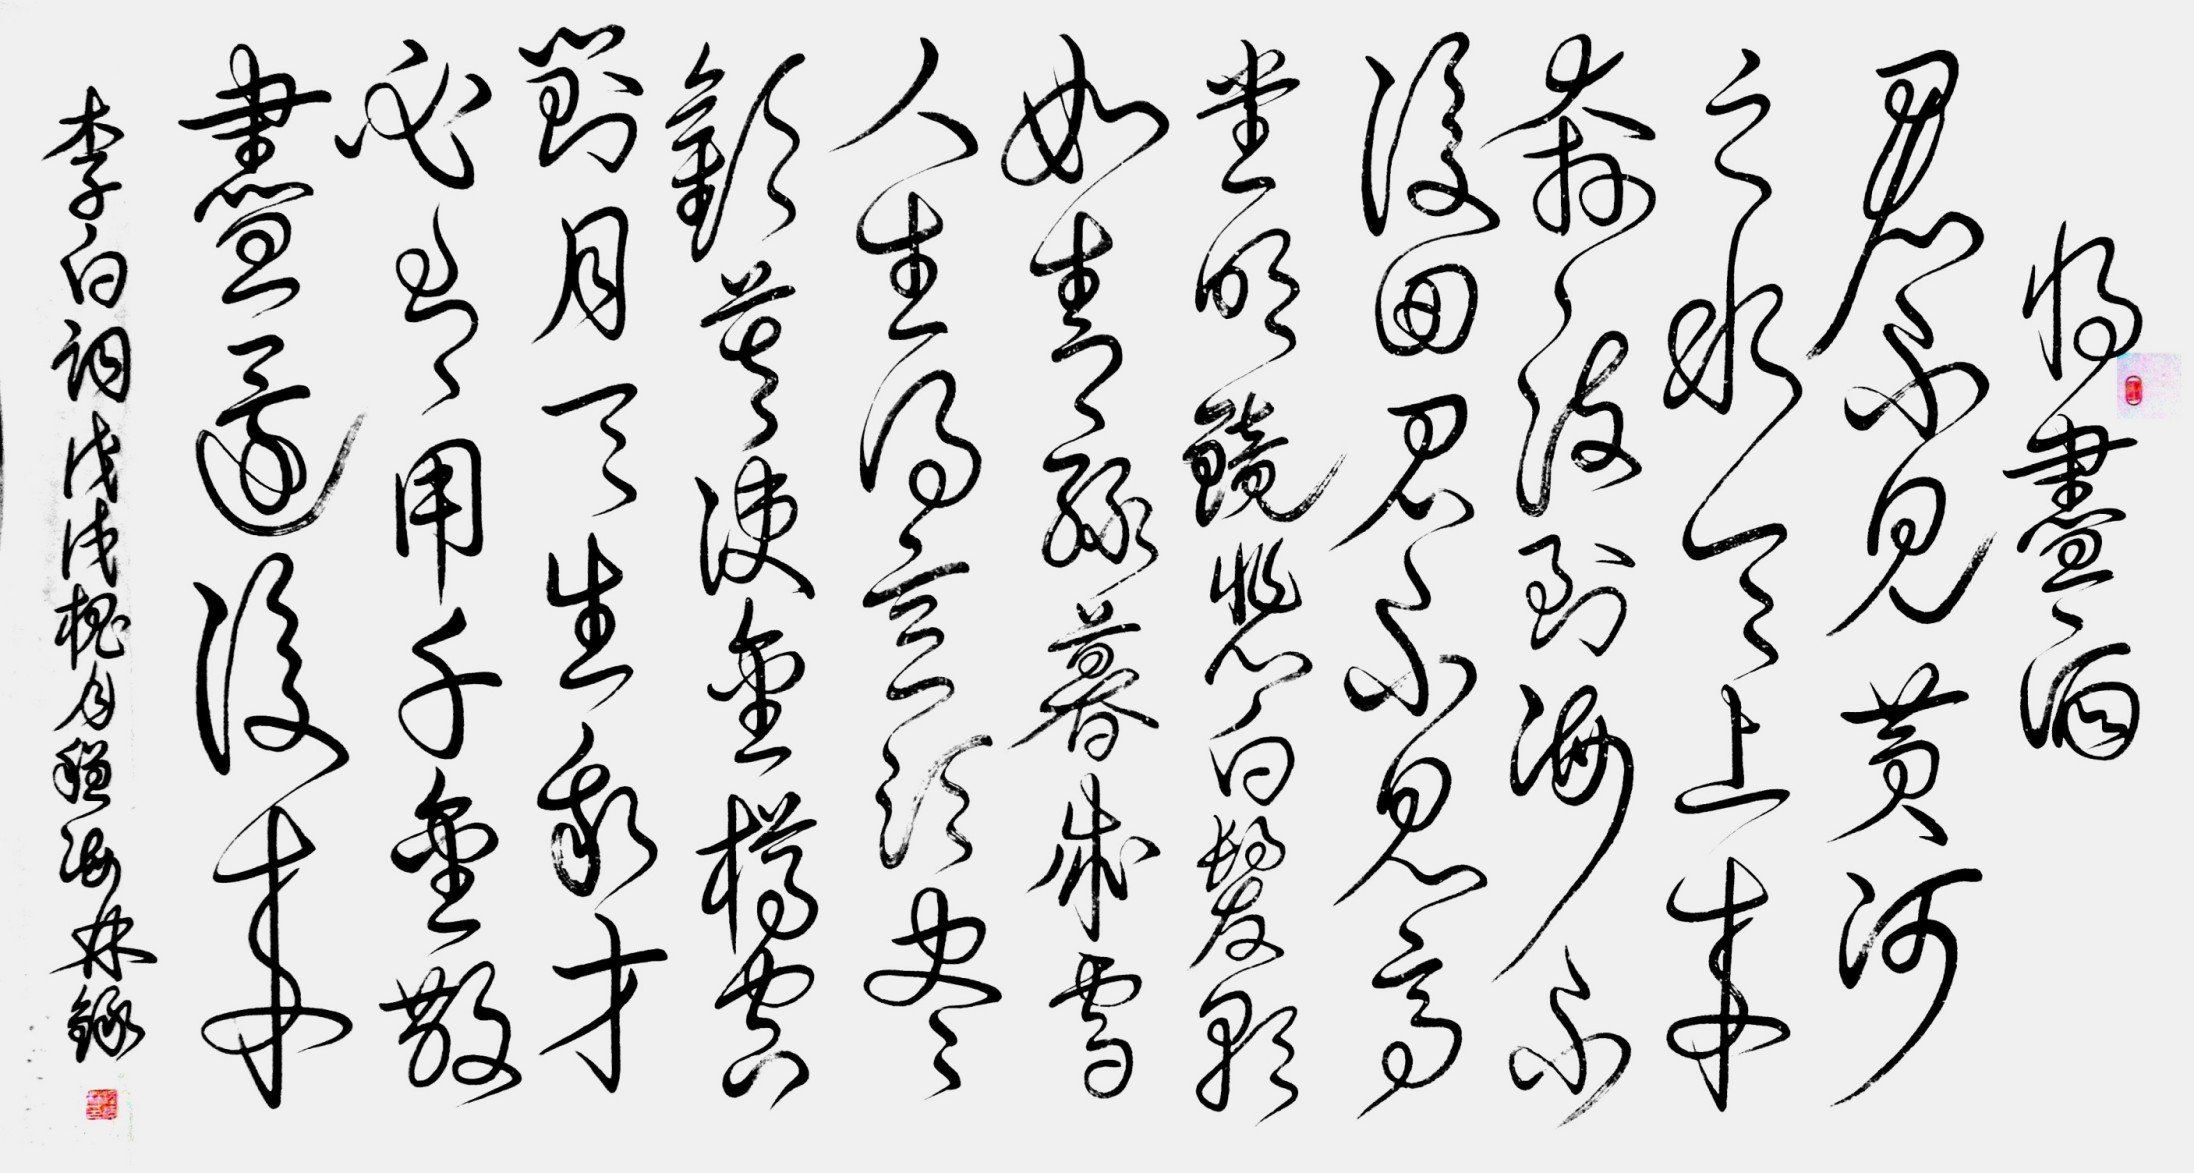 将盡酒
君不见黄河
之水天上来
奔流到海不
復回君不见高
堂明鏡悲白髮朝
如青絲暮成雪
人生得意须尽
歡莫使金樽空
對月天生我才
必有用千金散
盡還復来
李白词戊戌槐月海林録